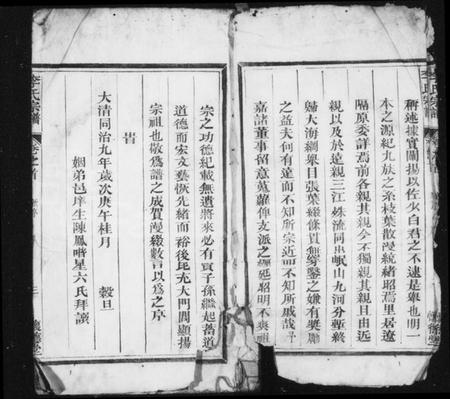 稱述據實闡揚以佐火白君之不逮是舉也明一
本之源紀九族之系枝葉散漫統緒昭焉里居遼
隔原委詳焉前各親其親今不獨親其親且由近
親以及於遠親三江殊流同出岷山九河分派終
歸大海綱舉目張葉綴條貫無穿鑿之嫌有奬勸
之益夫何有遠而不知所宗近而不知所戚哉予
嘉諸董事留意蒐羅俾支派之綿延昭明不爽祖
宗之功德紀載無遺將來必有賢子孫繼起蓄道
道德而宏文藝恢先緒而裕後昆充大門閭顯揚
宗祖也敬爲譜之成賀爰綴數言以爲之序
旹
大清同治九年歲次庚午桂月 穀旦
姻弟邑庠生陳鳳喈星六氏拜譔
李氏宗譜
卷之首
三